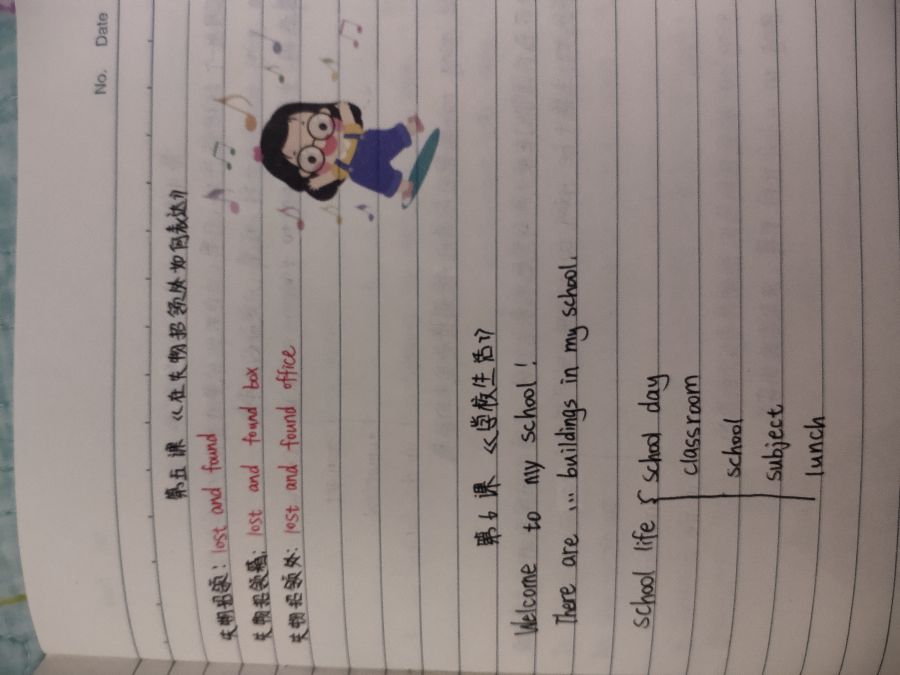 No.
Date
第五课 《在失物招领处如何表达》
失物招领: lost and found
失物招领箱: lost and found box
失物招领处: lost and found office
第6课 《学校生活》
Welcome to my school!
There are ... buildings in my school.
school life { school day
classroom
school
subject
lunch